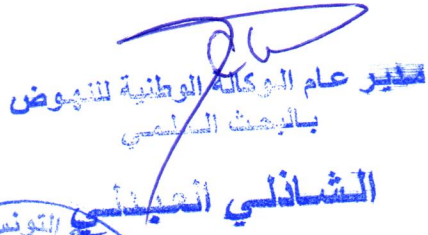 مدير عام الوكالة الوطنية للنهوض
بالبحث العلمي
الشاذلي العبدلي
التونس